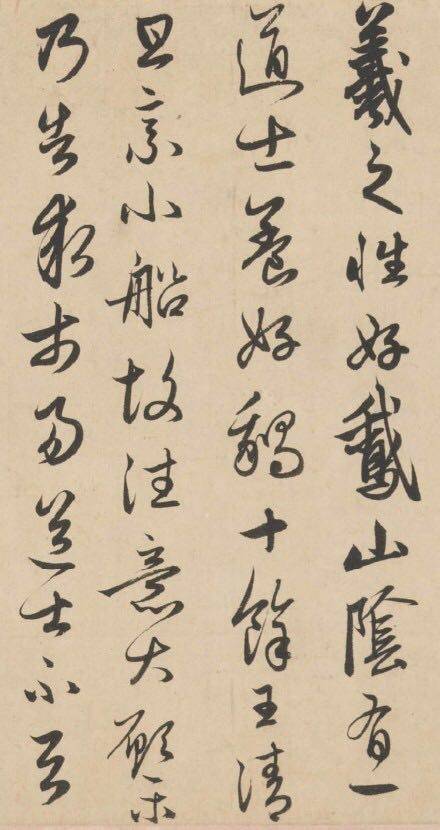 羲之性好鵞山陰有一
道士養好鵝十餘王清
旦乗小船故往意大願樂
乃告求市易道士不与